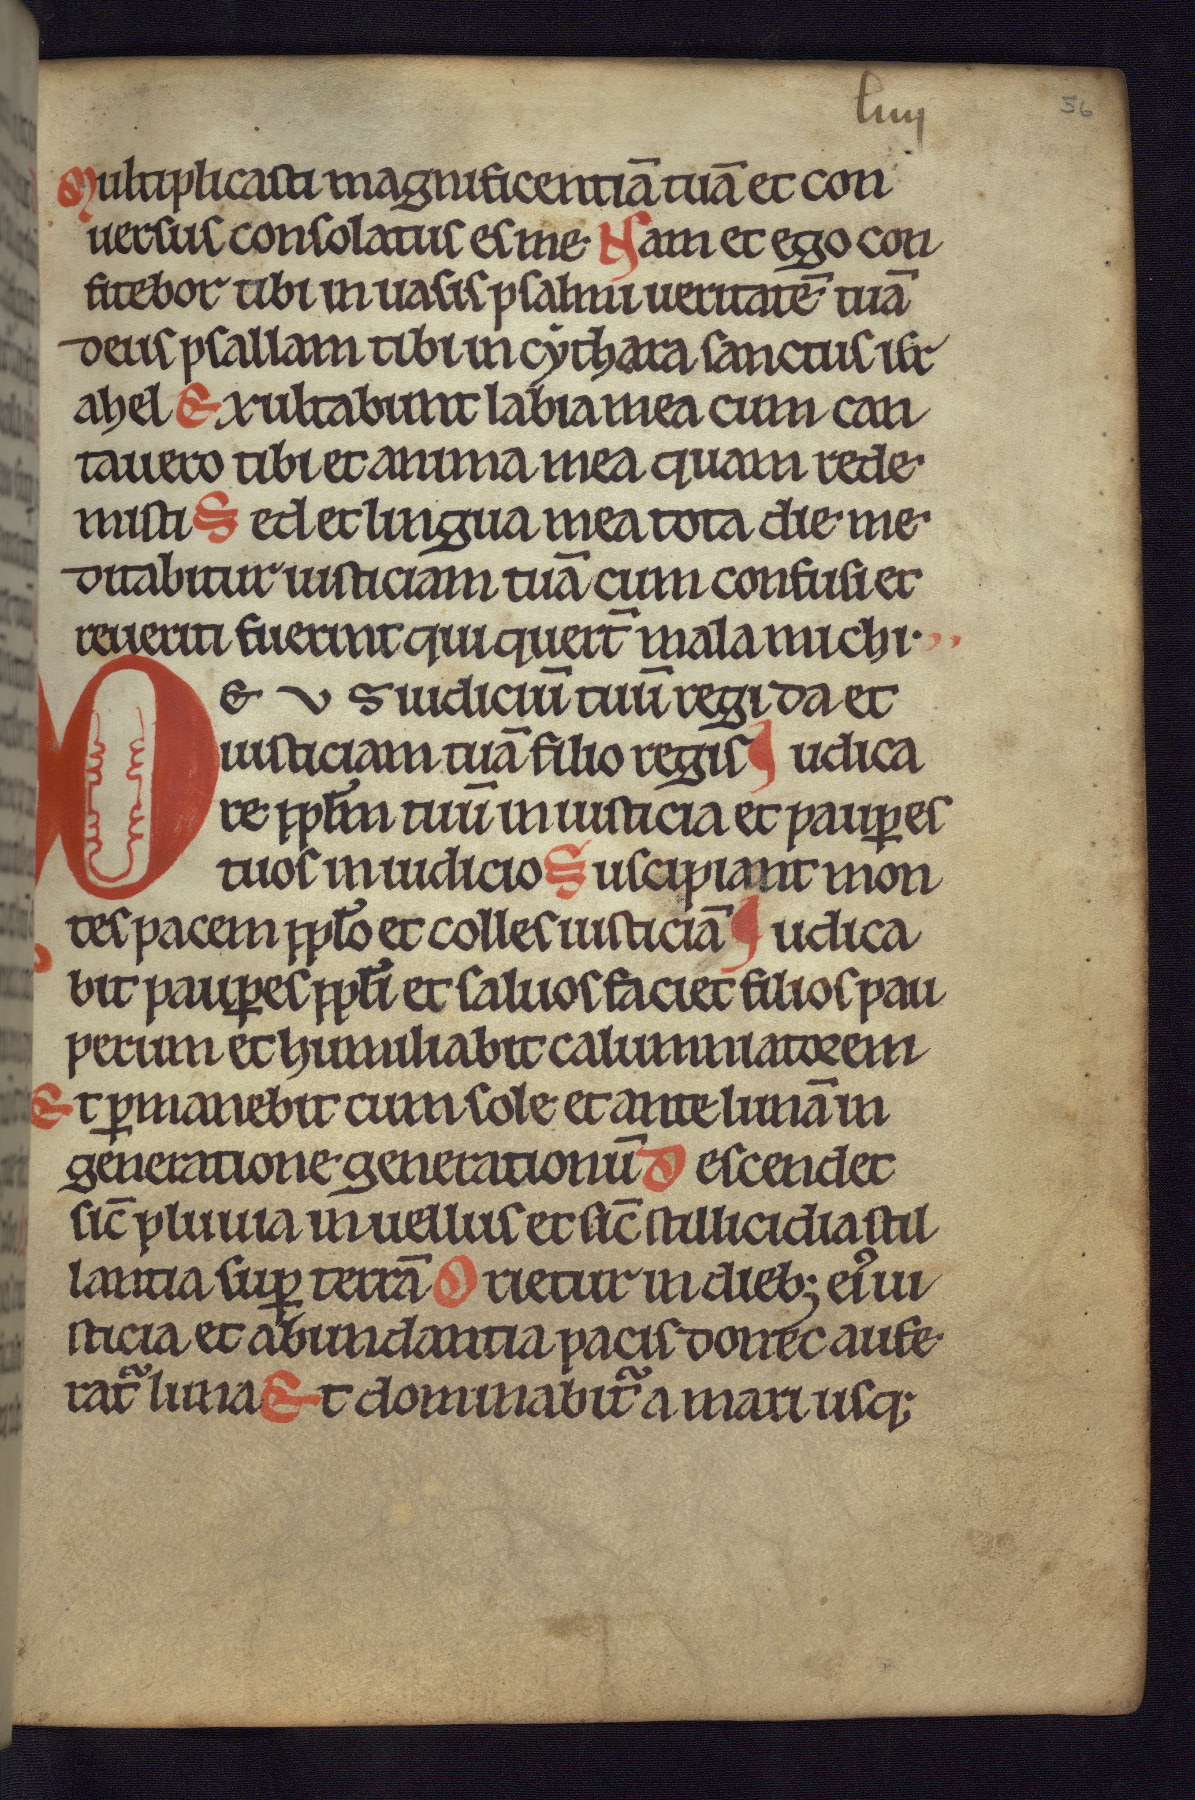 luij
56
Multiplicasti magnificentiā tuā et con
uersus consolatus es me. Nam et ego con
fitebor tibi in uasis psalmi ueritatē tuā
deus psallam tibi in cythara sanctus isr
ahel Exultabunt labia mea cum can
tauero tibi et anima mea quam rede
misti Sed et lingua mea tota die me
ditabitur iusticiam tuā cum confusi et
reueriti fuerint qui querr̄t mala michi.
DEVS iudiciū tuū regi da et
iusticiam tuā filio regis Iudica
re pplm̄ tuū in iusticia et pauꝑes
tuos in iudicio Suscipiant mon
tes pacem pplo̅ et colles iusticiā Iudica
bit pauꝑes ppli̅ et saluos faciet filios pau
perum et humiliabit calumniatorem
Et ꝑmanebit cum sole et ante lunā in
generatione generationū Descendet
sic̄ pluuia in uellus et sic̄ stillicidia stil
lantia suꝑ terrā Orietur in dieb; ei᾽ iu
sticia et abundantia pacis donec aufe
rat᷑ luna Et dominabit᷑ a mari usq;